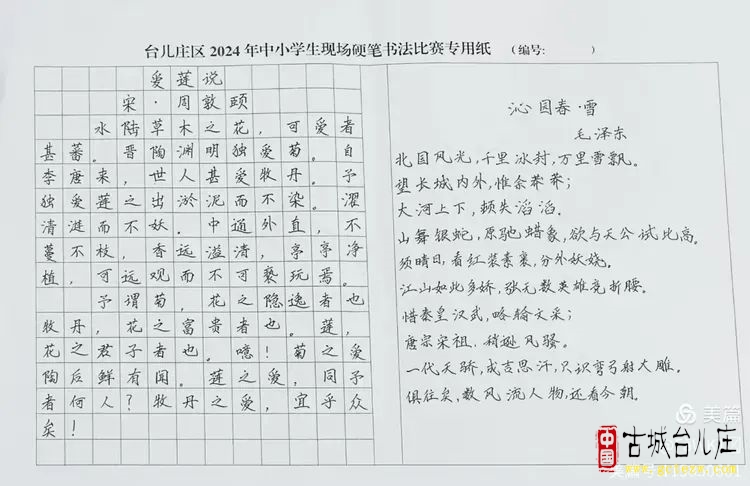 台儿庄区2024年中小学生现场硬笔书法比赛专用纸 （编号:        ）
爱莲说
宋·周敦颐
水陆草木之花，可爱者
甚蕃。晋陶渊明独爱菊。自
李唐来，世人甚爱牡丹。予
独爱莲之出淤泥而不染。濯
清涟而不妖。中通外直，不
蔓不枝，香远溢清，亭亭净
植，可远观而不可亵玩焉。
予谓菊，花之隐逸者也
牡丹，花之富贵者也。莲，
花之君子者也。噫！菊之爱
陶后鲜有闻。莲之爱，同予
者何人？牡丹之爱，宜乎众
矣！
沁园春·雪
毛泽东
北国风光，千里冰封，万里雪飘。
望长城内外，惟余莽莽；
大河上下，顿失滔滔。
山舞银蛇，原驰蜡象，欲与天公试比高。
须晴日，看红装素裹，分外妖娆。
江山如此多娇，引无数英雄竞折腰。
惜秦皇汉武，略输文采；
唐宗宋祖，稍逊风骚。
一代天骄，成吉思汗，只识弯弓射大雕。
俱往矣，数风流人物，还看今朝。
美篇
中国
古城台儿庄